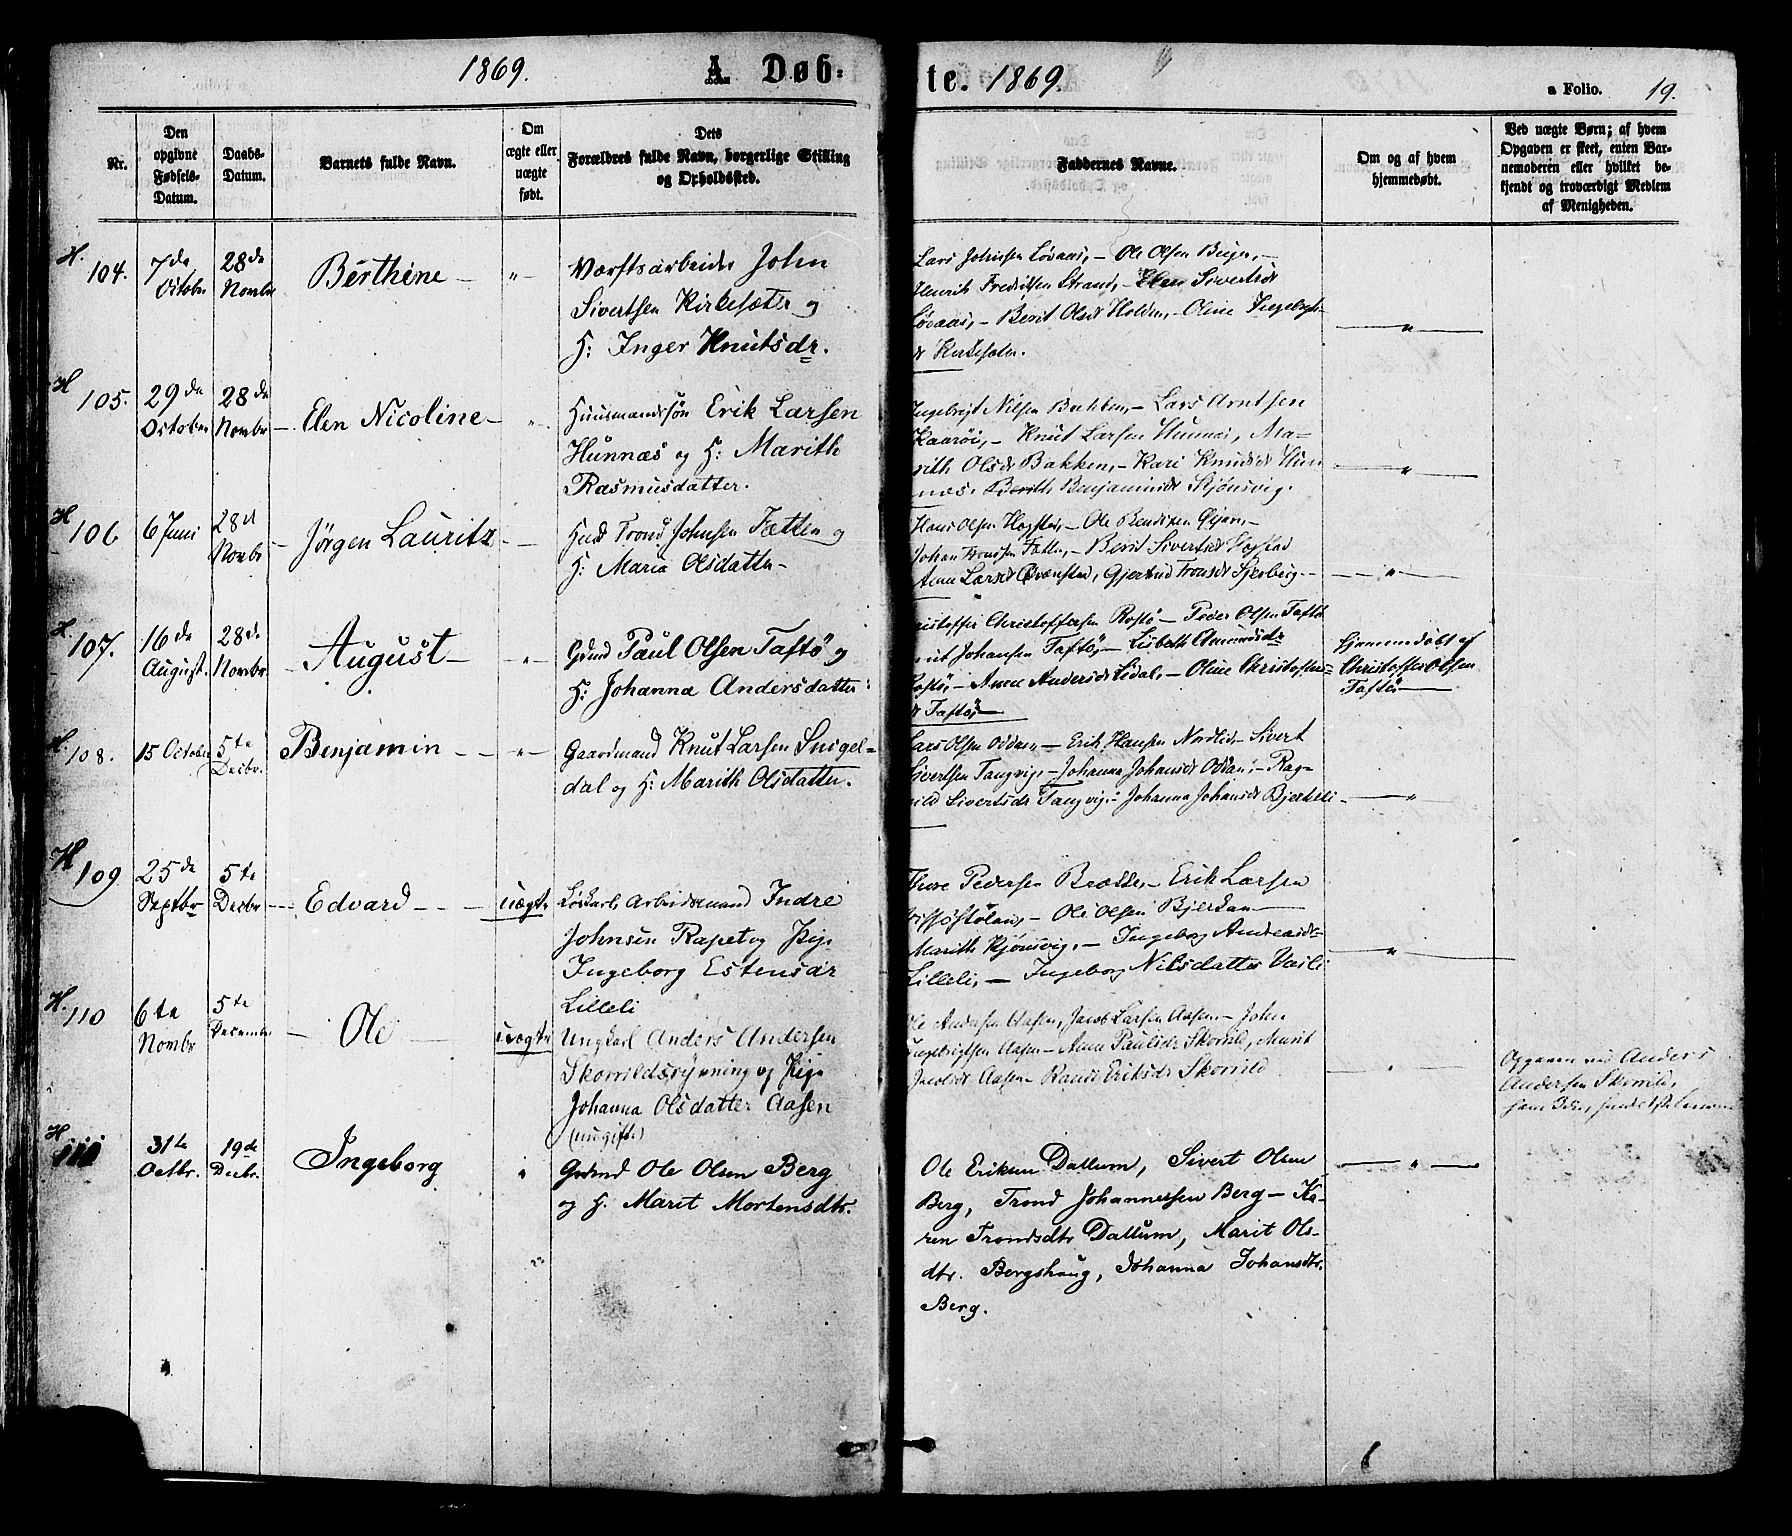 1869. A Døb-
te. 1869. a Folio. 19.
Nr.
Den opgivne Fødsels-Datum.
Daabs-Datum.
Barnets fulde Navn.
Om ægte eller uægte født.
Dets Forældres fulde Navn, borgerlige Stilling og Opholdssted.
Faddernes Navne.
Om og af hvem hjemmedøbt.
Ved uægte Børn; af hvem Opgaven er skeet, enten Barnemoderen eller hvilket bekjendt og troværdigt Medlem af Menigheden.
H. 104. 7de October 28de Novmbr Berthine — " —
Værftsarbeider John
Sivertsen Kirkesæter og
H: Inger Knutsdr.
Lars Johnsen Løvaas, — Ole Olsen
Henrik Fredriksen Strand, — Sivertsdr
Løvaas, — Berit Olsdr Holden, — Oline
— " —
H 105. 29de October 28de Novmbr — Elen Nicoline — " —
Huusmandssøn Erik Larsen
Hunnæs og H: Marith
Rasmusdatter.
Ingebrigt Nilsen Bakken, — Lars Arntsen
Kaarøi, — Knut Larsen Hunnæs, Ma-
rith Olsdr Bakken, — Kari Knudsdr Hun-
næs. Berith Benjaminsdr Skjønsvig.
— " —
H 106 6 Juni 28de Novmbr — Jörgen Lauritz —
Husd Trond Johnsen Fætten og
H: Maria Olsdatter —
Hans Olsen Hogstad, — Ole Bendixen Øien, —
Johan Tronsen Fætten, — Berit Sivertsdr Hogstad
Anne Larsdr, Gjertrud Tronsdr Sjerberg. —
— " —
H. 107. 16de August. 28de Novmbr. — August — " —
Grbmd Paul Olsen Taftö og
H: Johanna Andersdatter
Christoffersen Rostö — Peder Olsen Taftö
Johansen Taftö, — Lisbeth Amundsdr
Rostö, — Anne Andersdr Lidal, — Oline Christofers-
dr Taftö, —
Hjemmedöbt af
Christoffer Olsen
Taftö —
H. 108. 15 October 5te Decbr. Benjamin — " —
Gaardmand Knut Larsen Snigel-
dal og H: Marith Olsdatter.
Lars Olsen Oddan, — Erik Hansen Nordlid, — Sivert
Sivertsen Tangvig, — Johanna Johansdr Oddan, — Rag-
nild Sivertsdr Tangvig, — Johanna Johansdr Bjerkeli
— " —
H 109 25de Septbr 5te Decbr — Edvard — uægte
Löskarl, Arbeidsmand Indre
Johnsen Rapet og Pige
Ingeborg Estensdr
Lilleli
Thore Pedersen Brætte, — Erik Larsen
— Ole Olsen Bjerkan —
Marith Kjönsvig, — Ingeborg Andreasdr
Lilleli, — Ingeborg Nilsdatter Vasli
— " —
H. 110 6te Novmbr 5te December — Ole — uægte
Ungkarl Anders Andersen
Skorildsrydning og Pige
Johanna Olsdatter Aasen
(ungifte)
Ole Andersen Aasen, Jacob Larsen Aasen — John
Ingebrigtsen Aasen — Anne Paulsdr Skorild, Marit
Jacobsdr Aasen — Randi Eriksdr Skorild
Opgaven ved Anders
Andersen Skorild,
H 111 31te Octbr. 19de Decbr. Ingeborg "
Grdmd Ole Olsen Berg
og H. Marit Mortensdtr.
Ole Eriksen Dallum, Sivert Olsen
Berg, Trond Johannessen Berg — Ka-
ren Trondsdtr Dallum, Marit Ols-
dtr. Bergshaug, Johanna Johansdtr.
Berg.
— " —